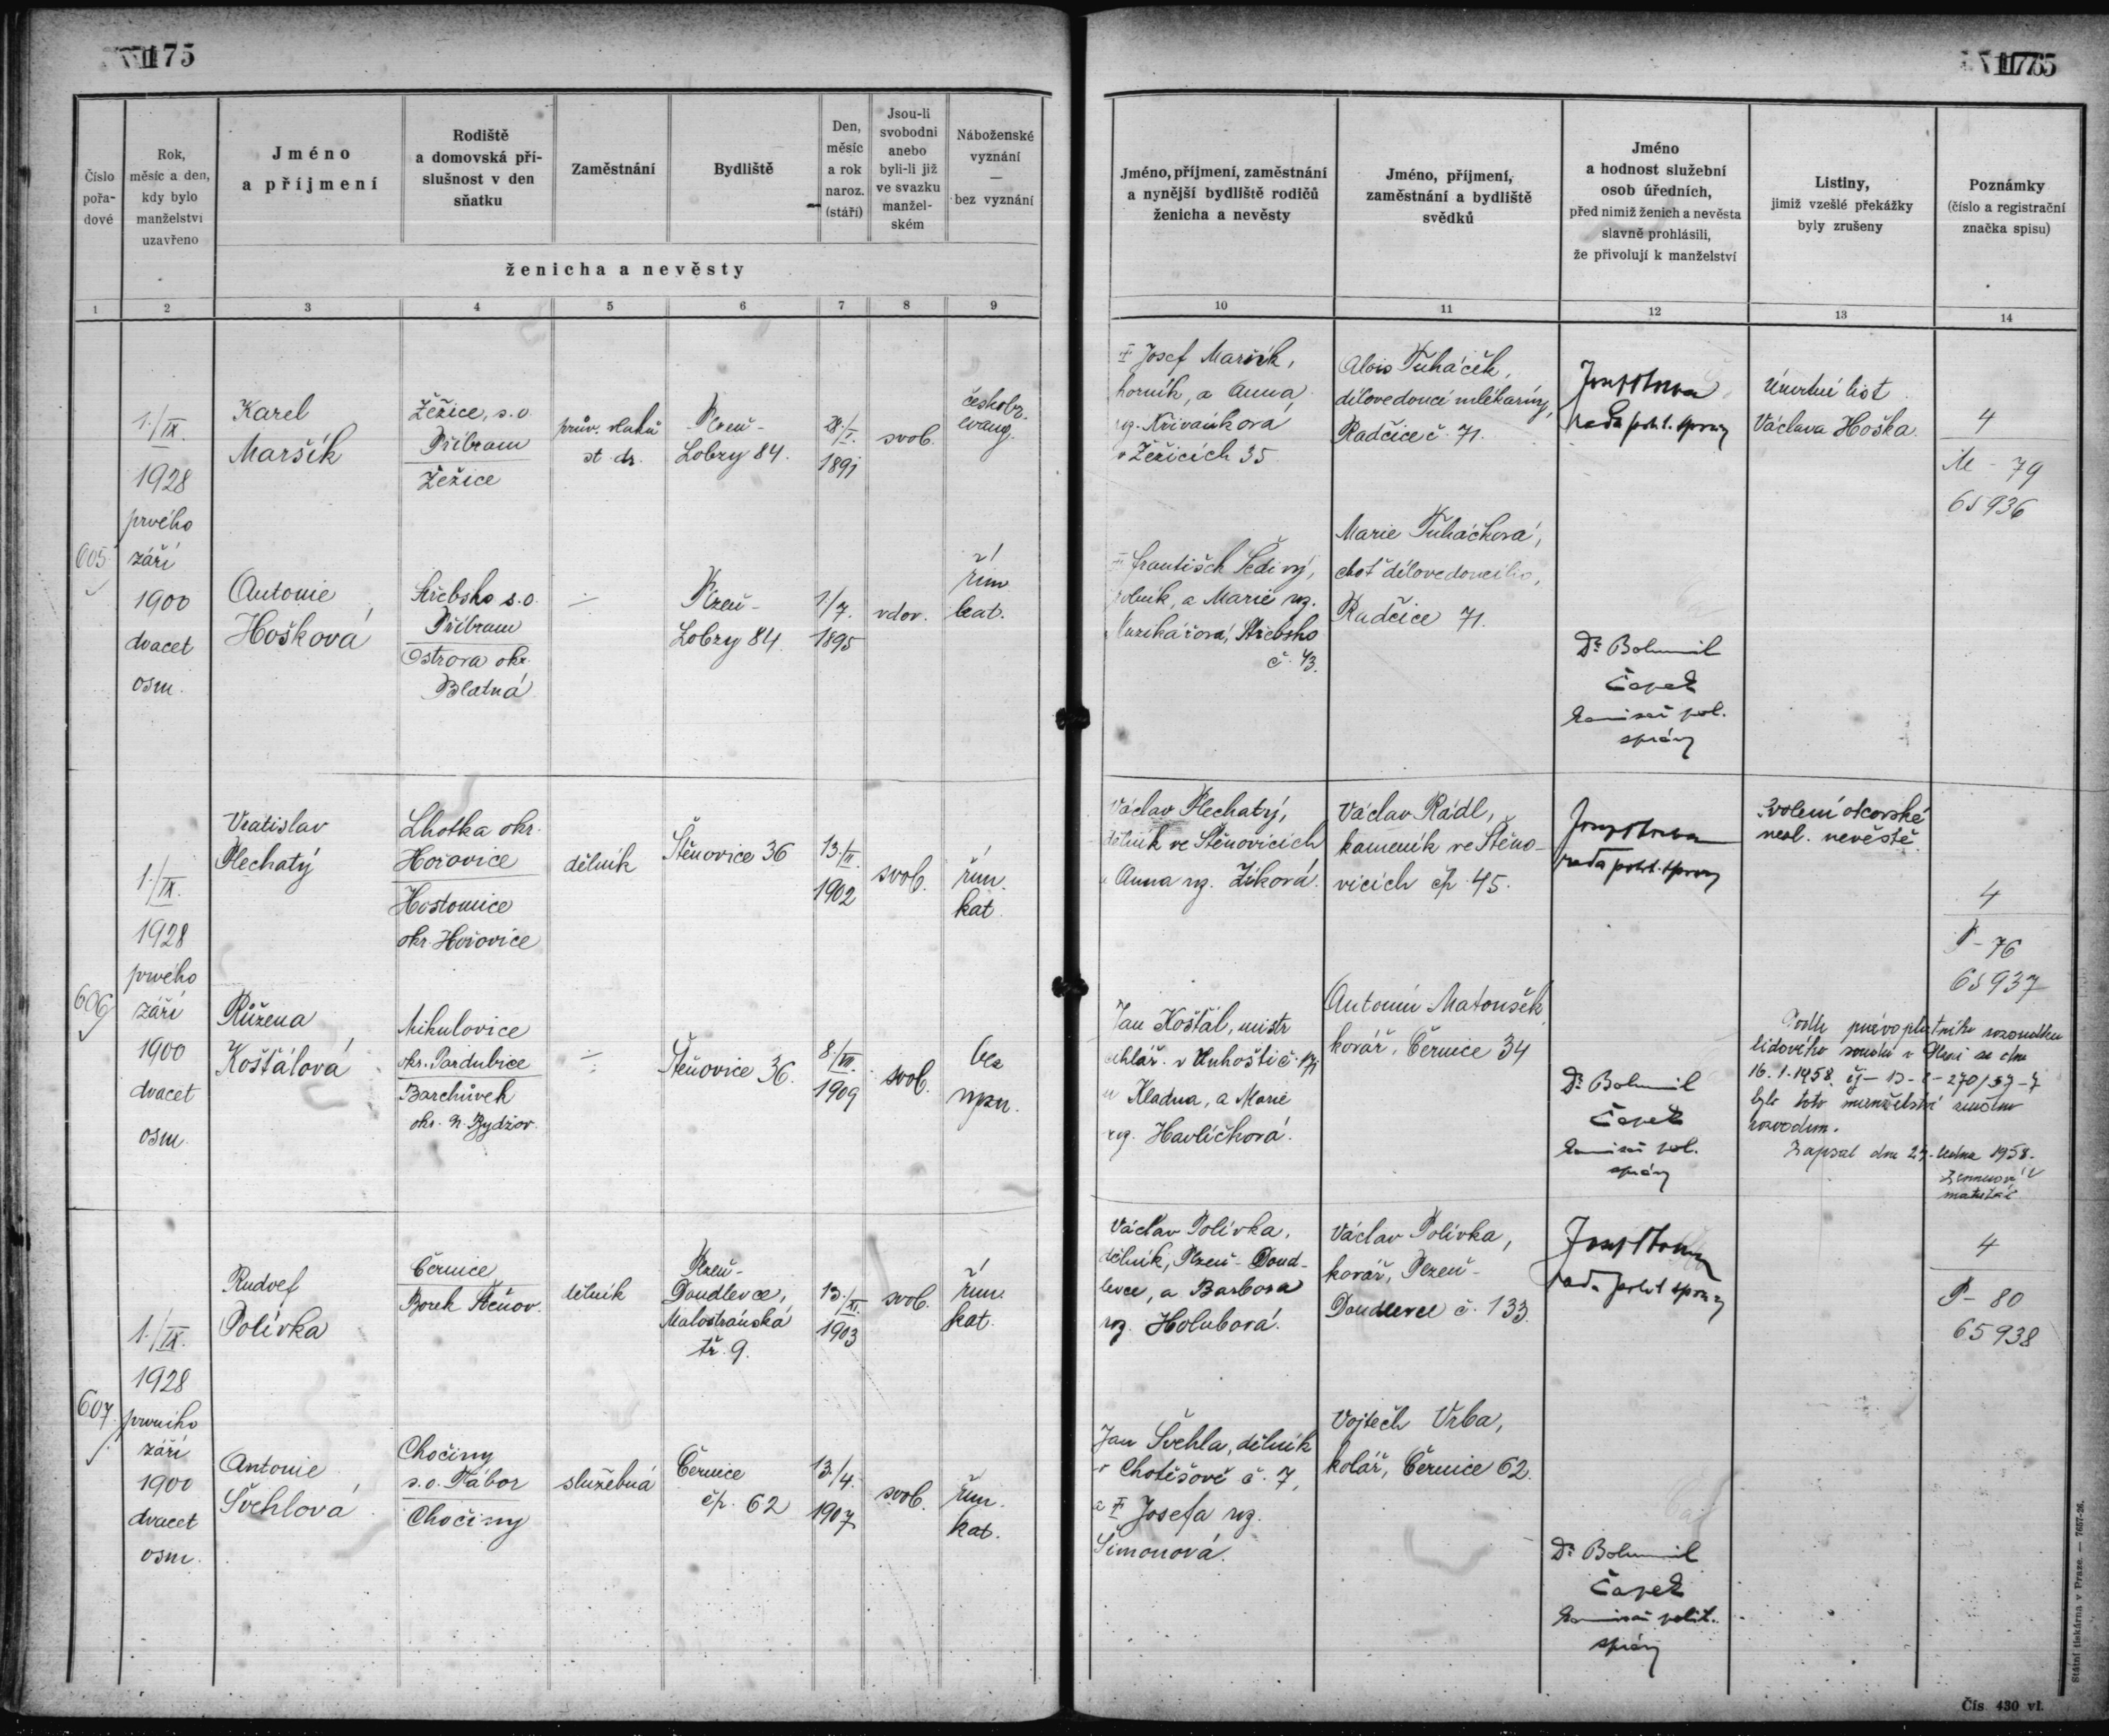 175
Číslo pořa- dové
Rok, měsíc a den, kdy bylo manželství uzavřeno
Jméno a příjmení
Rodiště a domovská pří- slušnost v den sňatku
Zaměstnání
Bydliště
Den, měsíc a rok naroz. (stáří)
Jsou-li svobodni anebo byli-li již ve svazku manžel- ském
Náboženské vyznání — bez vyznání
ženicha a nevěsty
1 2 3 4 5 6 7 8 9
605
1./IX.
1928
prvého
září
1900
dvacet
osm.
Karel
Maršík
Žěžice, s.o.
Příbram
Žěžice
prův. vlaků
st. dr.
Plzeň-
Lobzy 84.
28./I.
1891
svob.
českobr.
evang.
Antonie
Hošková
Střebsko s.o.
Příbram
Ostrova okr.
Blatná
÷
Plzeň-
Lobzy 84.
1/7.
1895
vdov.
řím.
kat.
606
1./IX.
1928
prvého
září
1900
dvacet
osm.
Vratislav
Plechatý
Lhotka okr.
Hořovice
Hostomice
okr. Hořovice
dělník
Štěnovice 36
13./II.
1902
svob.
řím.
kat.
Růžena
Košťálová
Mikulovice
okr. Pardubice
Barchůvek
okr. N. Bydžov.
÷
Štěnovice 36.
8./VII.
1909
svob.
bez
vyzn.
607.
1./IX.
1928
prvního
září
1900
dvacet
osm.
Rudolf
Polívka
Černice
Borek Štěnov.
dělník
Plzeň-
Doudlevce,
Malostranská
tř. 9.
13./XI.
1903
svob.
řím.
kat.
Antonie
Švehlová
Chočiny
s.o. Tábor
Chočiny
služebná
Černice
čp. 62
13./4.
1907
svob.
řím.
kat.
Jméno, příjmení, zaměstnání a nynější bydliště rodičů ženicha a nevěsty
Jméno, příjmení, zaměstnání a bydliště svědků
Jméno a hodnost služební osob úředních, před nimiž ženich a nevěsta slavně prohlásili, že přivolují k manželství
Listiny, jimiž vzešlé překážky byly zrušeny
Poznámky (číslo a registrační značka spisu)
10 11 12 13 14
Josef Maršík,
horník, a Anna
roz. Křivánková
v Žěžicích 35.
Alois Tuháček,
dílovedoucí mlékárny,
Radčice č. 71.
rada polit. správy
Úmrtní list
Václava Hoška.
4
M - 79
65936
František Šedivý,
rolník, a Marie roz.
Střebsko
č. 43.
Marie Tuháčková,
choť dílovedoucího,
Radčice 71.
Dr Bohumil
Čapek
komisař pol.
správy
Václav Plechatý,
dělník ve Štěnovicích
a Anna roz. Žíková.
Václav Rádl,
kameník ve Štěno-
vicích čp. 45.
rada polit. správy
Svolení otcovské
nezl. nevěstě.
4
P - 76
65937
Jan Košťál, mistr
cihlář. v Unhošti č. 171
u Kladna, a Marie
roz. Havlíčková.
Antonín Matoušek
kovář, Černice 34
Dr Bohumil
Čapek
komisař pol.
správy
Podle právoplatného rozsudku
lidového soudu v Plzni ze dne
16. 1. 1958
bylo toto manželství zrušeno
rozvodem.
Zapsal dne 29. ledna 1958.
matrikář
Václav Polívka,
dělník, Plzeň-Doud-
levce, a Barbora
roz. Holubová.
Václav Polívka,
kovář, Plzeň-
Doudlevce č. 133.
rada polit. správy
4
P - 80
65938
Jan Švehla, dělník
v Chotěšově č. 7,
a Josefa roz.
Šimonová.
Vojtěch Vrba,
kolář, Černice 62.
Dr Bohumil
Čapek
komisař polit.
správy
Státní tiskárna v Praze. — 7657-26.
Čís. 430 vl.